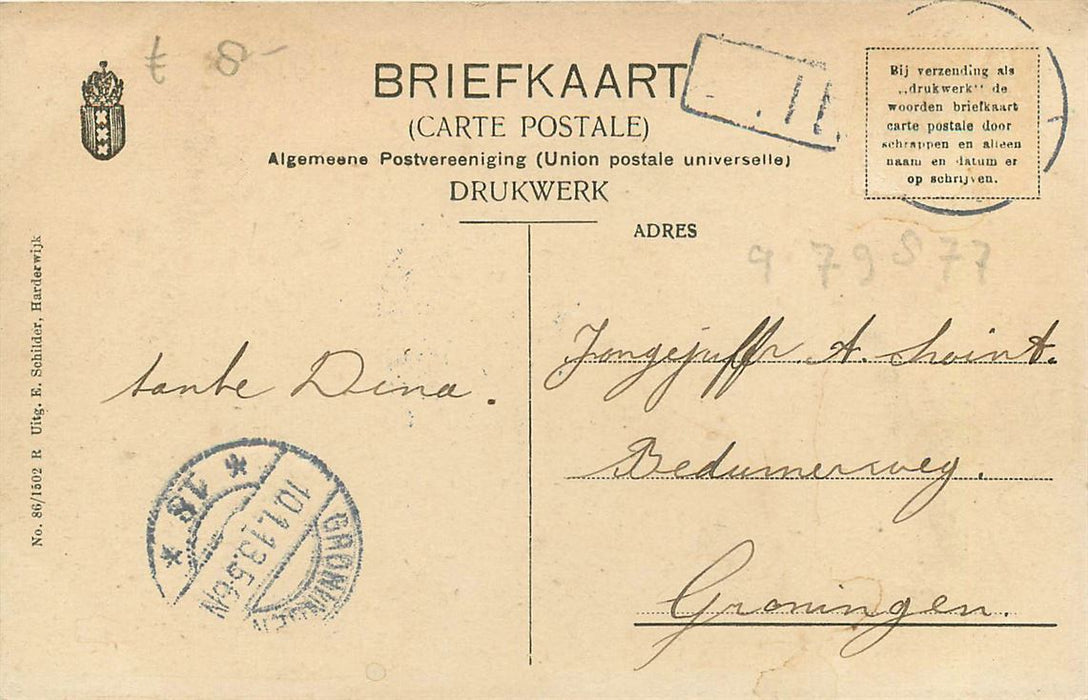 ƒ 8-
BRIEFKAART
(CARTE POSTALE)
Algemeene Postvereeniging (Union postale universelle)
DRUKWERK
II.
Bij verzending als
„drukwerk" de
woorden briefkaart
carte postale door
schrappen en alleen
naam en datum er
op schrijven.
ADRES
979877
tante Dina.
Jongejuffr A.
Bedumerweg.
Groningen.
No. 86/1502 R Uitg. E. Schilder, Harderwijk
GRONINGEN
10.1.13.5-6N
* 18 *